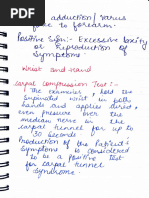 adduction/varus
force to forearm.
Positive Sign:- Excessive laxity
or Reproduction of
Symptoms.
Wrist and Hand
Carpal Compression Test:-
The examiner, hold the
Supinated wrist in both
hands and applies direct,
even pressure over the
carpal tunnel for up to
30 seconds
Production of the Patient's
Symptoms is considered
to be a positive test
for carpal tunnel
syndrome.